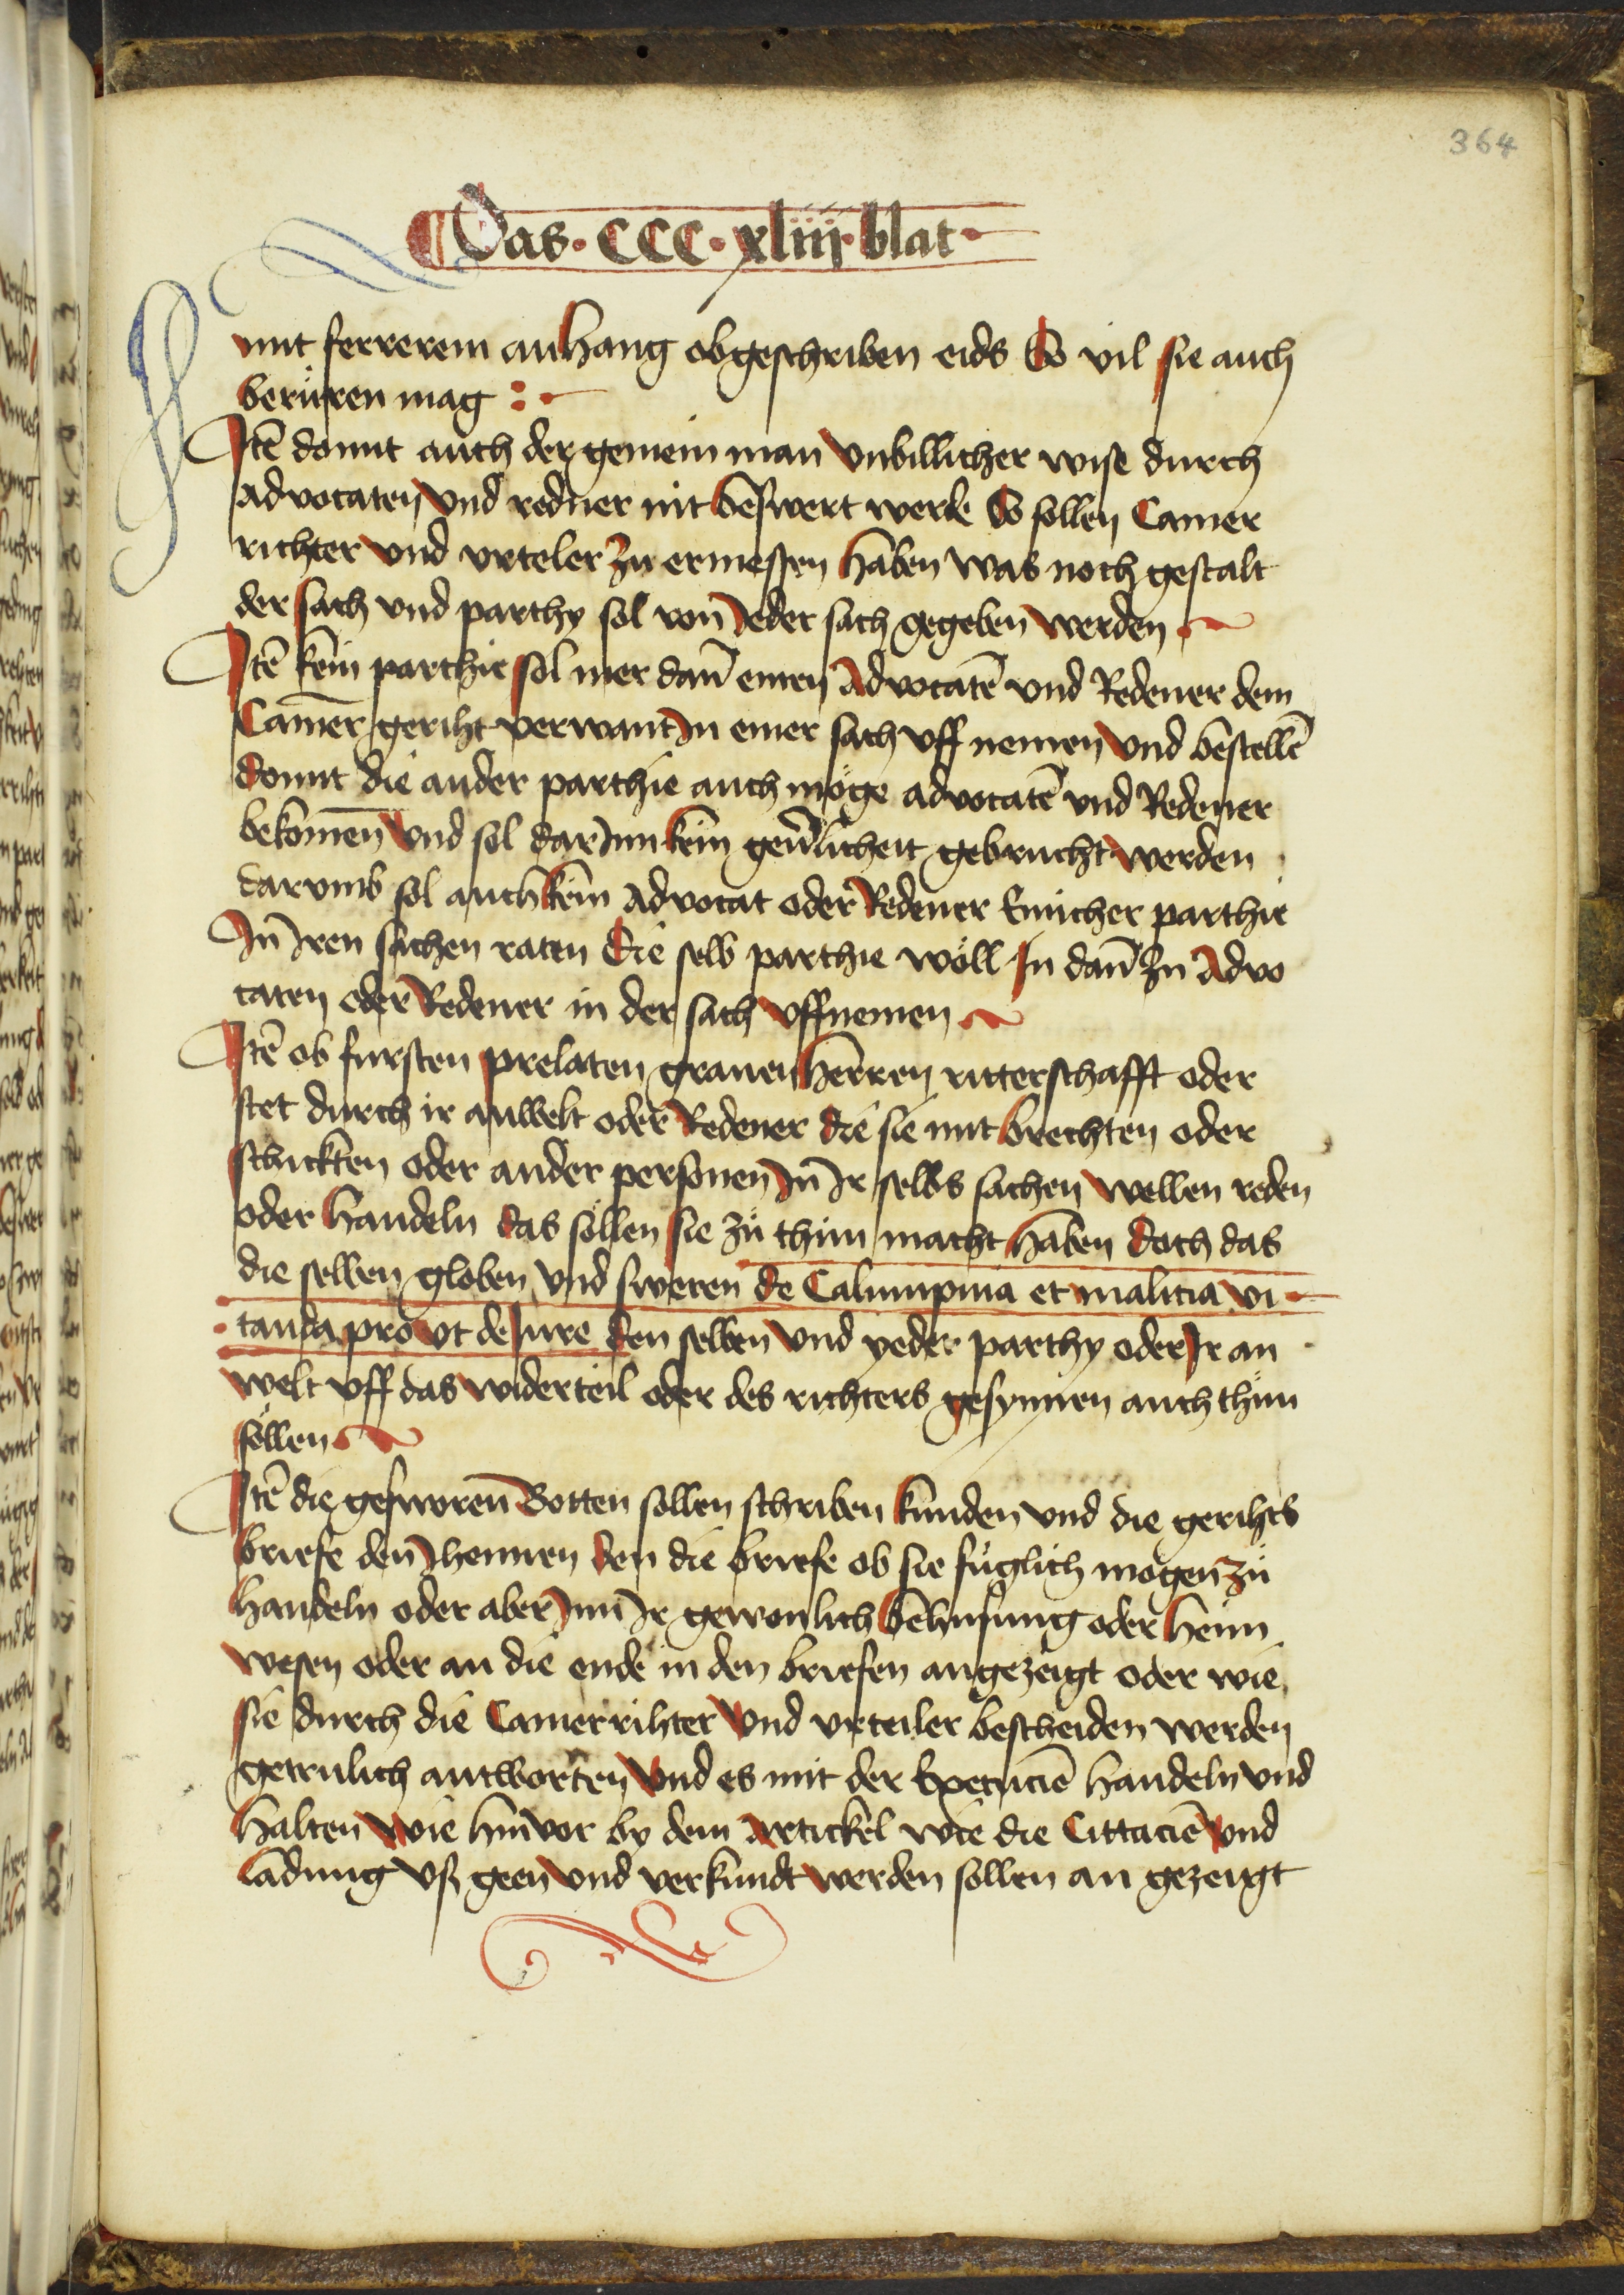 364
Das · CCC · xliiij · blat ·
mit ferrerem anhang obgeschriben eids So vil sie auch
berüren mag :
Itē domit auch der gemein man vnbillicher wise durch
advocaten vnd redner nit beswert werde So sollen Camer
richter vnd vrteler zu ermessen haben was noch gestalt
der sach vnd parthy sol von Jeder sach gegeben werden
Itē kein parthie sol mer dañ einen Advocatē vnd Redener dem
Camer geriht verwant In einer sach vff nemen vnd bestellē
domit die ander parthie auch möge advocatē vnd Redener
bekomen vnd sol darInn kein geūlicheit gebrucht werden
darumb sol auch kein Advocat oder Redener Einicher parthie
Jn Jren sachen raten die selb parthie wöll Jn dañ zu Advo
caten oder Redener in der sach vffnemen
Itē ob fursten prelaten grauen herren ritterschafft oder
stet durch ir anwelt oder Redener die sie mit brechten oder
schickten oder ander personen Jn Jr selbs sachen wellen reden
oder handeln das söllen sie zů thůn macht haben doch das
die selben globen vnd sweren de Calumpnia et malicia vi
tanda pro vt de Jure den selben vnd yeder parthy oder Jr an
welt vff das widerteil oder des richters gesynnen auch thůn
söllen
Itē die gesworen Botten sollen schriben kunden vnd die gerihts
briefe den Jhennen den die briefe ob sie füglich mogen zů
handeln oder aber Jnn Jr gewonlich behusung oder heim
wesen oder an die ende in den briefen angezeigt oder wie
sie durch die Camerrihter vnd vrteiler bescheiden werden
getrulich antworten vnd es mit der Execuciē handeln vnd
halten wie hinvor by dem Artickel wie die Cittaciē vnd
ladung vß geen vnd verkundt werden sollen an gezeigt